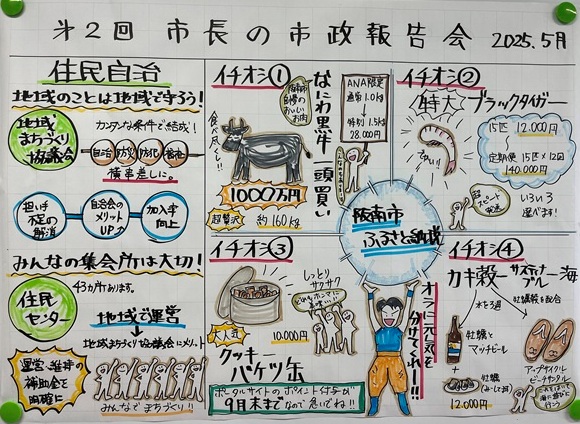 第2回 市長の市政報告会 2025.5月
住民自治
地域のことは地域で守ろう!
地域
まちづくり
協議会
カンタンな条件で結成!
自治 防災 防犯 福祉
横串差しに。
担い手
不足の
解消
自治会の
メリット
UP↑
加入率
向上
みんなの集会所は大切!
43カ所あります。
住民
センター
地域で運営
地域まちづくり協議会にメリット
運営・維持の
補助金を
明確に
みんなでまちづくり!!
イチオシ①
阪南市
自慢の
おいしい
お肉
なにわ黒牛
一頭買い
ANA限定
通常1.0kg
特別1.5kg
28.000円
食べ尽くし!!
1000万円
超贅沢
約160kg
イチオシ②
特大ブラックタイガー
15匹 12.000円
定期便 15匹×12回
140.000円
超
スピード
発送
いろいろ
選べます!
阪南市
ふるさと納税
イチオシ③
しっとり
サクサク
大人気
10.000円
クッキー
バケツ缶
ポータルサイトのポイント付与が
9月末までなので急いでね!!
オラに元気を
分けてくれー!!
イチオシ④
カキ殻
サステナブルー海
水を3週
牡蠣殻を配合
牡蠣と
マッチビール
+
牡蠣
12.000円
アップサイクル
ビーチサンダル